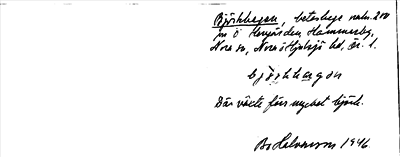 Björkhagen, beteshage
m Ö Herrgården, Hammarby,
Nora sn, Nora o Hjulsjö bd, Ör. l.
björkhagen
Där växte förr mycket björk.
Bo Halvarson 1946